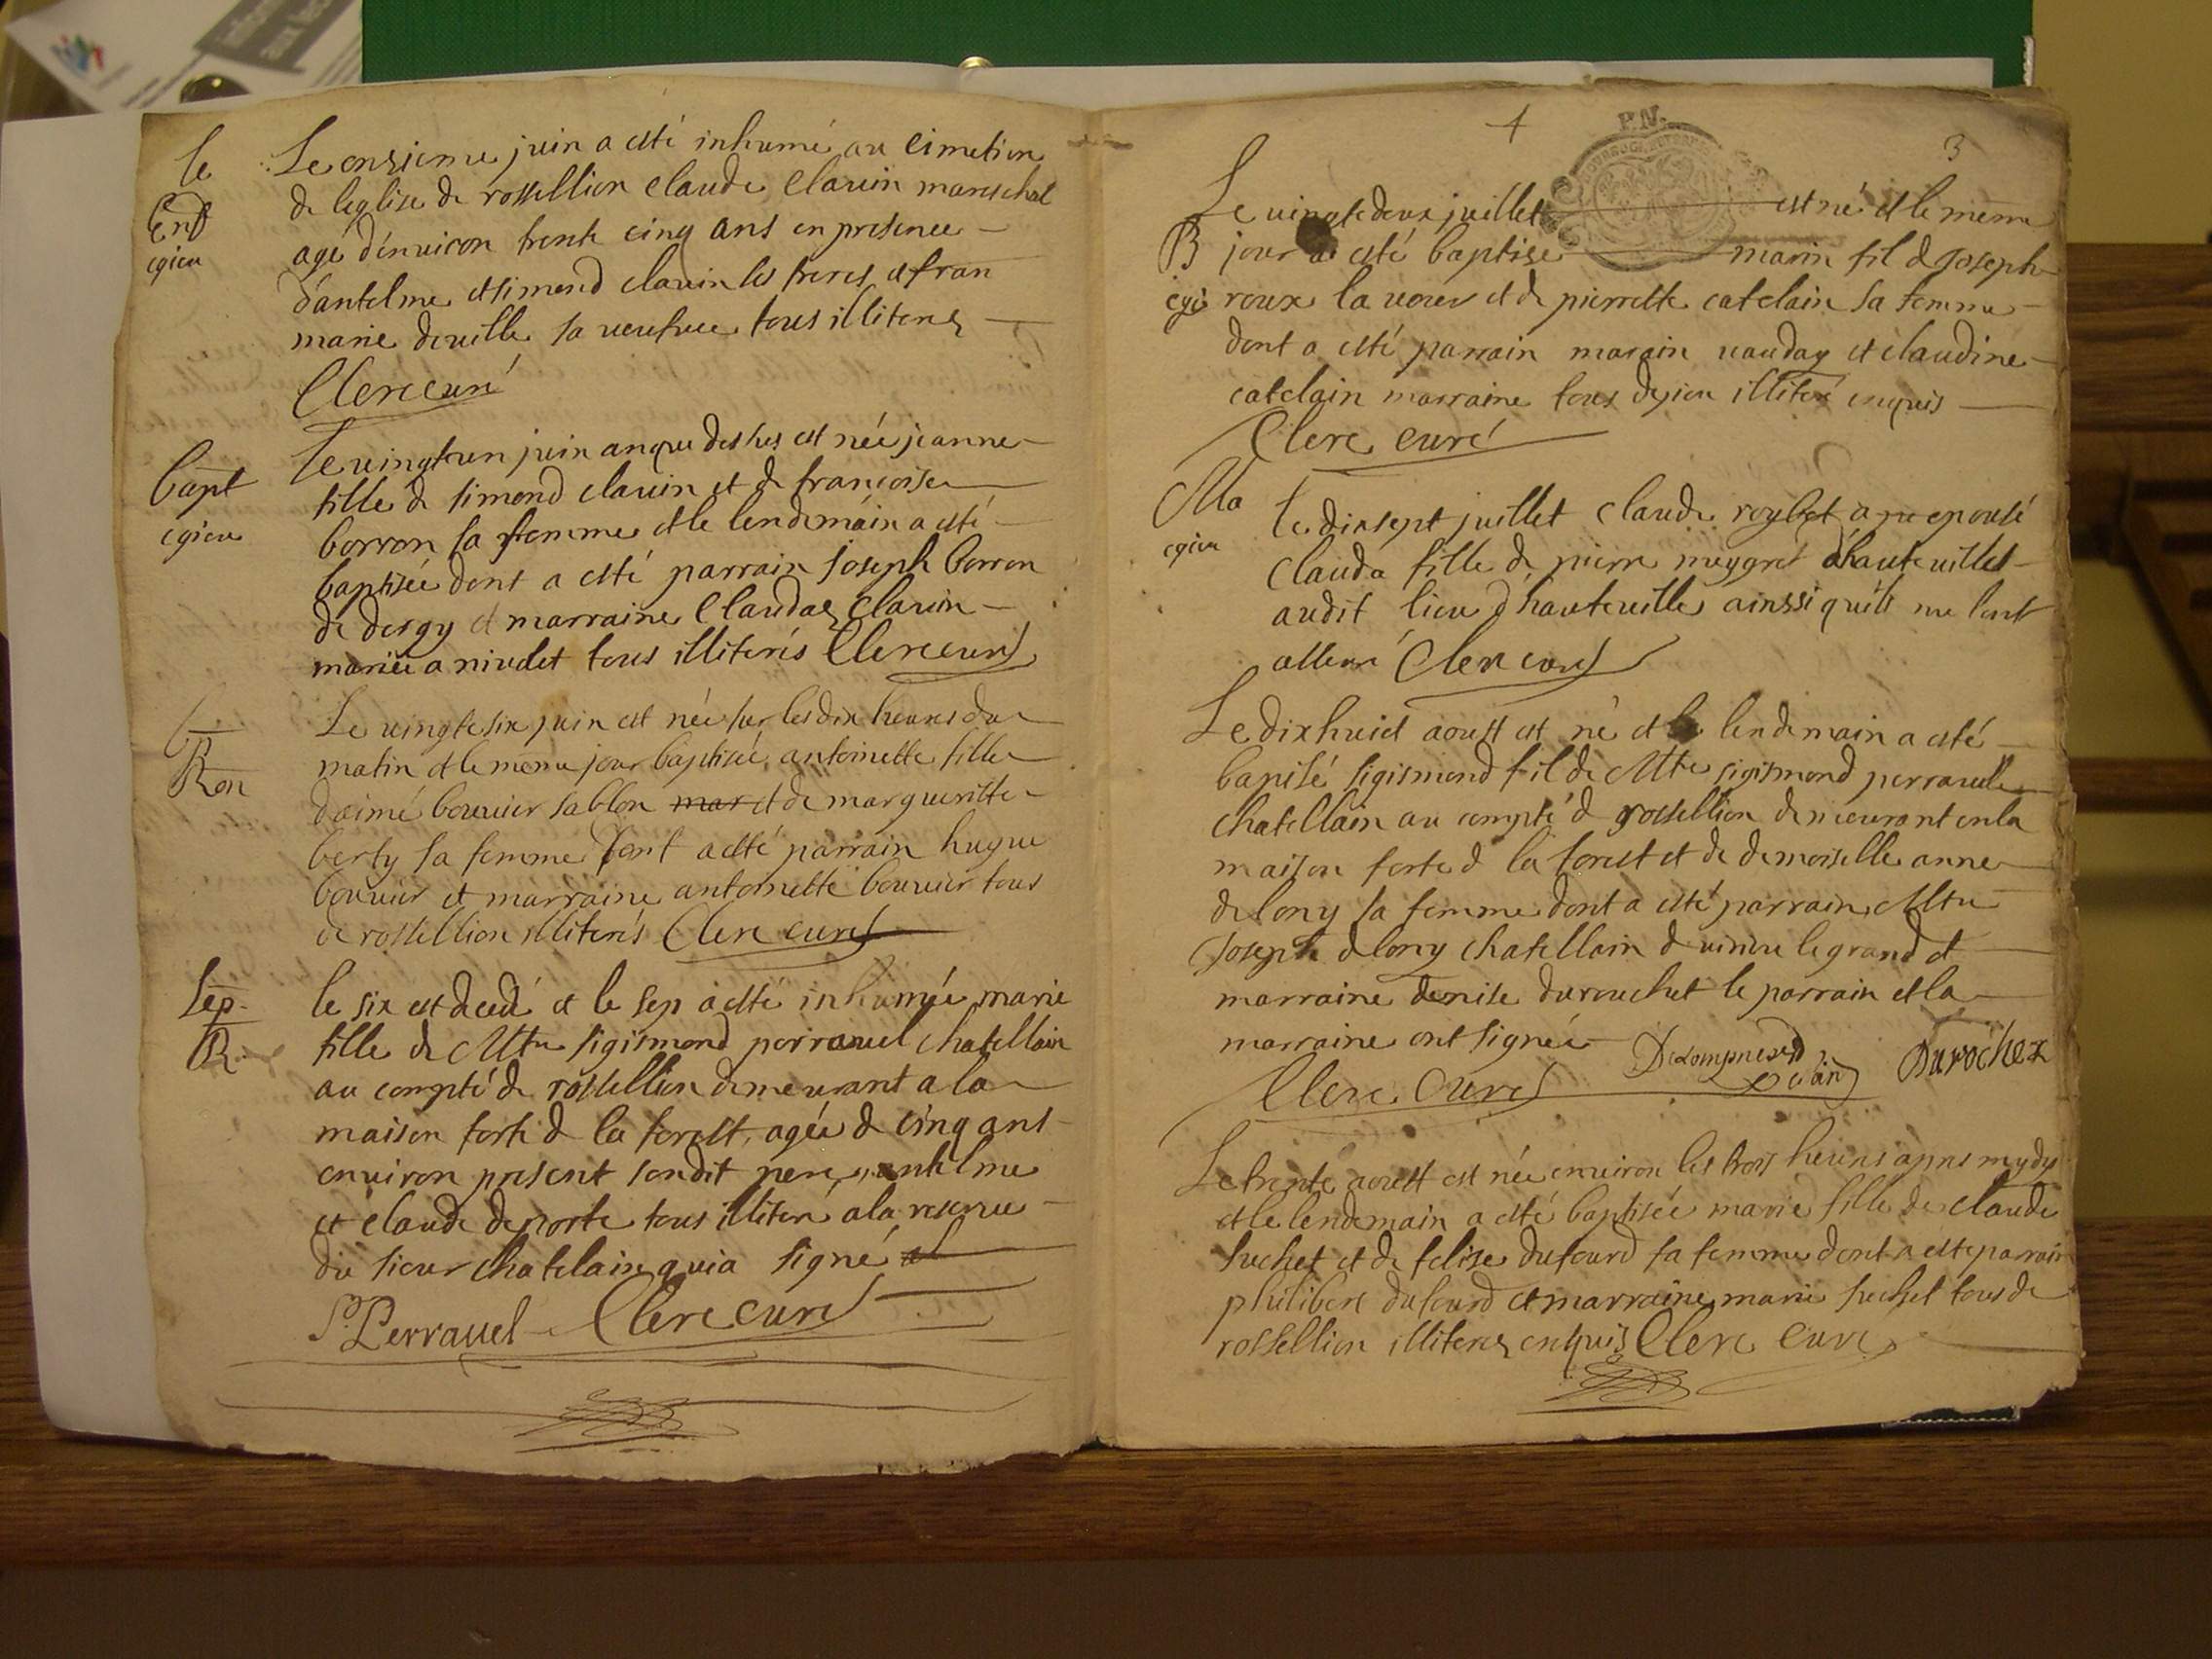 le
Enf
egieu
Le onzieme juin a esté inhumé au cimetiere
de leglise de rossellion claude clavin mareschal
agé d'environ trente cinq ans en presence
d'antelme et simond clavin ses freres et fran
marie deville sa veufvee tous illiteres
Clerc curé
bapt
egieu
Le vingt un juin an que dessus est née jeanne
fille de simond clavin et de francoise
borron sa femme et le lendemain a esté
baptisée dont a esté parrain joseph borron
de dergy et marraine Claudaz clavin
mariée a nivolet tous illiterés Clerc curé
b
Ron
Le vingt six juin est née sur les dix heures du
matin et le meme jour baptisée antoinette fille
d'aimé bouvier sablon mar et de margueritte
berty sa femme dont a esté parrain hugue
bouvier et marraine antoinette bouvier tous
de rossellion illiterés Clerc curé
Sep.
R.
le six est decedé et le sep a esté inhumée marie
fille de Mtre sigismond perravel chatellain
au compté de rossellion demeurant a la
maison forte d la forest, agée d cinq ans
environ present sondit pere, antelme
et claude deporte tous illiteré a la reserve
du sieur chatelain qui a signé
S. Perravel Clerc curé
4
P.N.
3
Le vingt deux juillet est né et le meme
B
jour a esté baptise marin fil d Joseph
egi
roux la vover et de pierrette catelain sa femme
dont a esté parrain marain vauday et claudine
catelain marraine tous degieu illiteré enquis
Clerc curé
Ma
egieu
Le dixsept juillet claude roybet a epousé
Clauda fille de pierre meygret d'hauteville
audit lieu d'hauteville ainssi qu'ils me lont
attesté Clerc curé
Le dix huict aoust est né et le lendemain a esté
bapisé sigismond fil de Mtre sigismond perravel
chatellain au compté d rossellion demeurant en la
maison forte d la forest et de demoiselle anne
delony sa femme dont a esté parrain Mtre
Joseph delony chatellain d virieu le grand et
marraine denise durouchet le parrain et la
marraine ont signée
Durochex
Clerc Curé
Le trente aoust est née environ les trois heures apres mydy
et le lendemain a esté baptisée marie fille de claude
suchet et de felise dufourd sa femme dont a esté parrain
philibert dufourd et marraine marie suchet tous de
rossellion illiteres enquis Clerc Curé